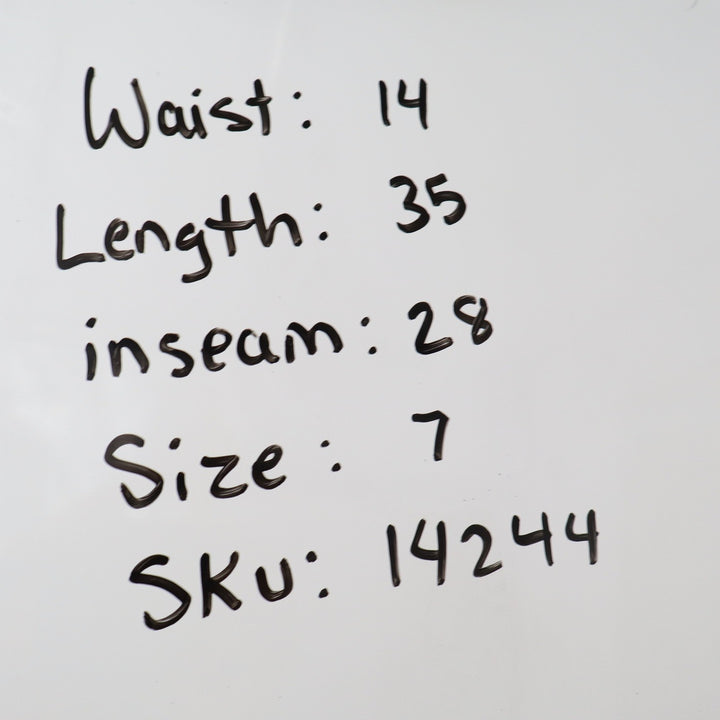 Waist: 14
Length: 35
inseam: 28
Size: 7
SKU: 14244